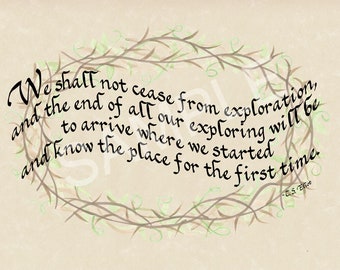 We shall not cease from exploration,
and the end of all our exploring will be
to arrive where we started
and know the place for the first time.
SAMPLE